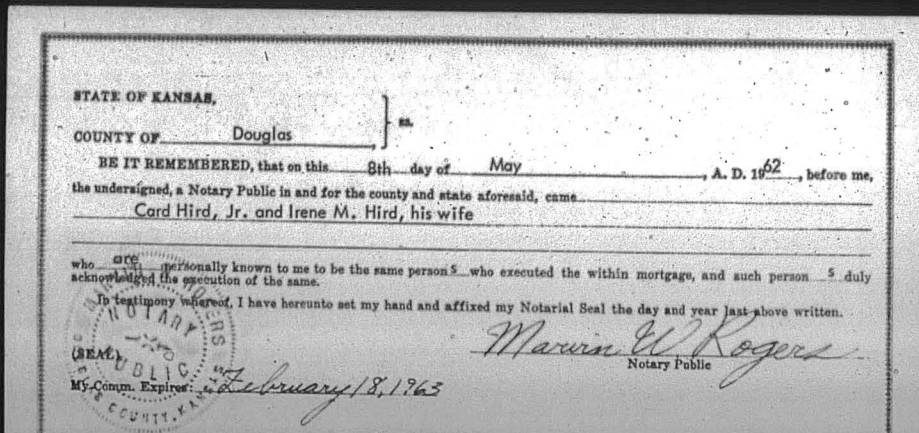 STATE OF KANSAS,
ss.
COUNTY OF Douglas,
BE IT REMEMBERED, that on this 8th day of May, A. D. 1962, before me,
the undersigned, a Notary Public in and for the county and state aforesaid, came
Card Hird, Jr. and Irene M. Hird, his wife
who are personally known to me to be the same person s who executed the within mortgage, and such person s duly
acknowledged the execution of the same.
In testimony whereof, I have hereunto set my hand and affixed my Notarial Seal the day and year last above written.
Marvin W Rogers
Notary Public
(SEAL)
My Comm. Expires: February 18, 1963
NOTARY
PUBLIC
COUNTY, KANSAS